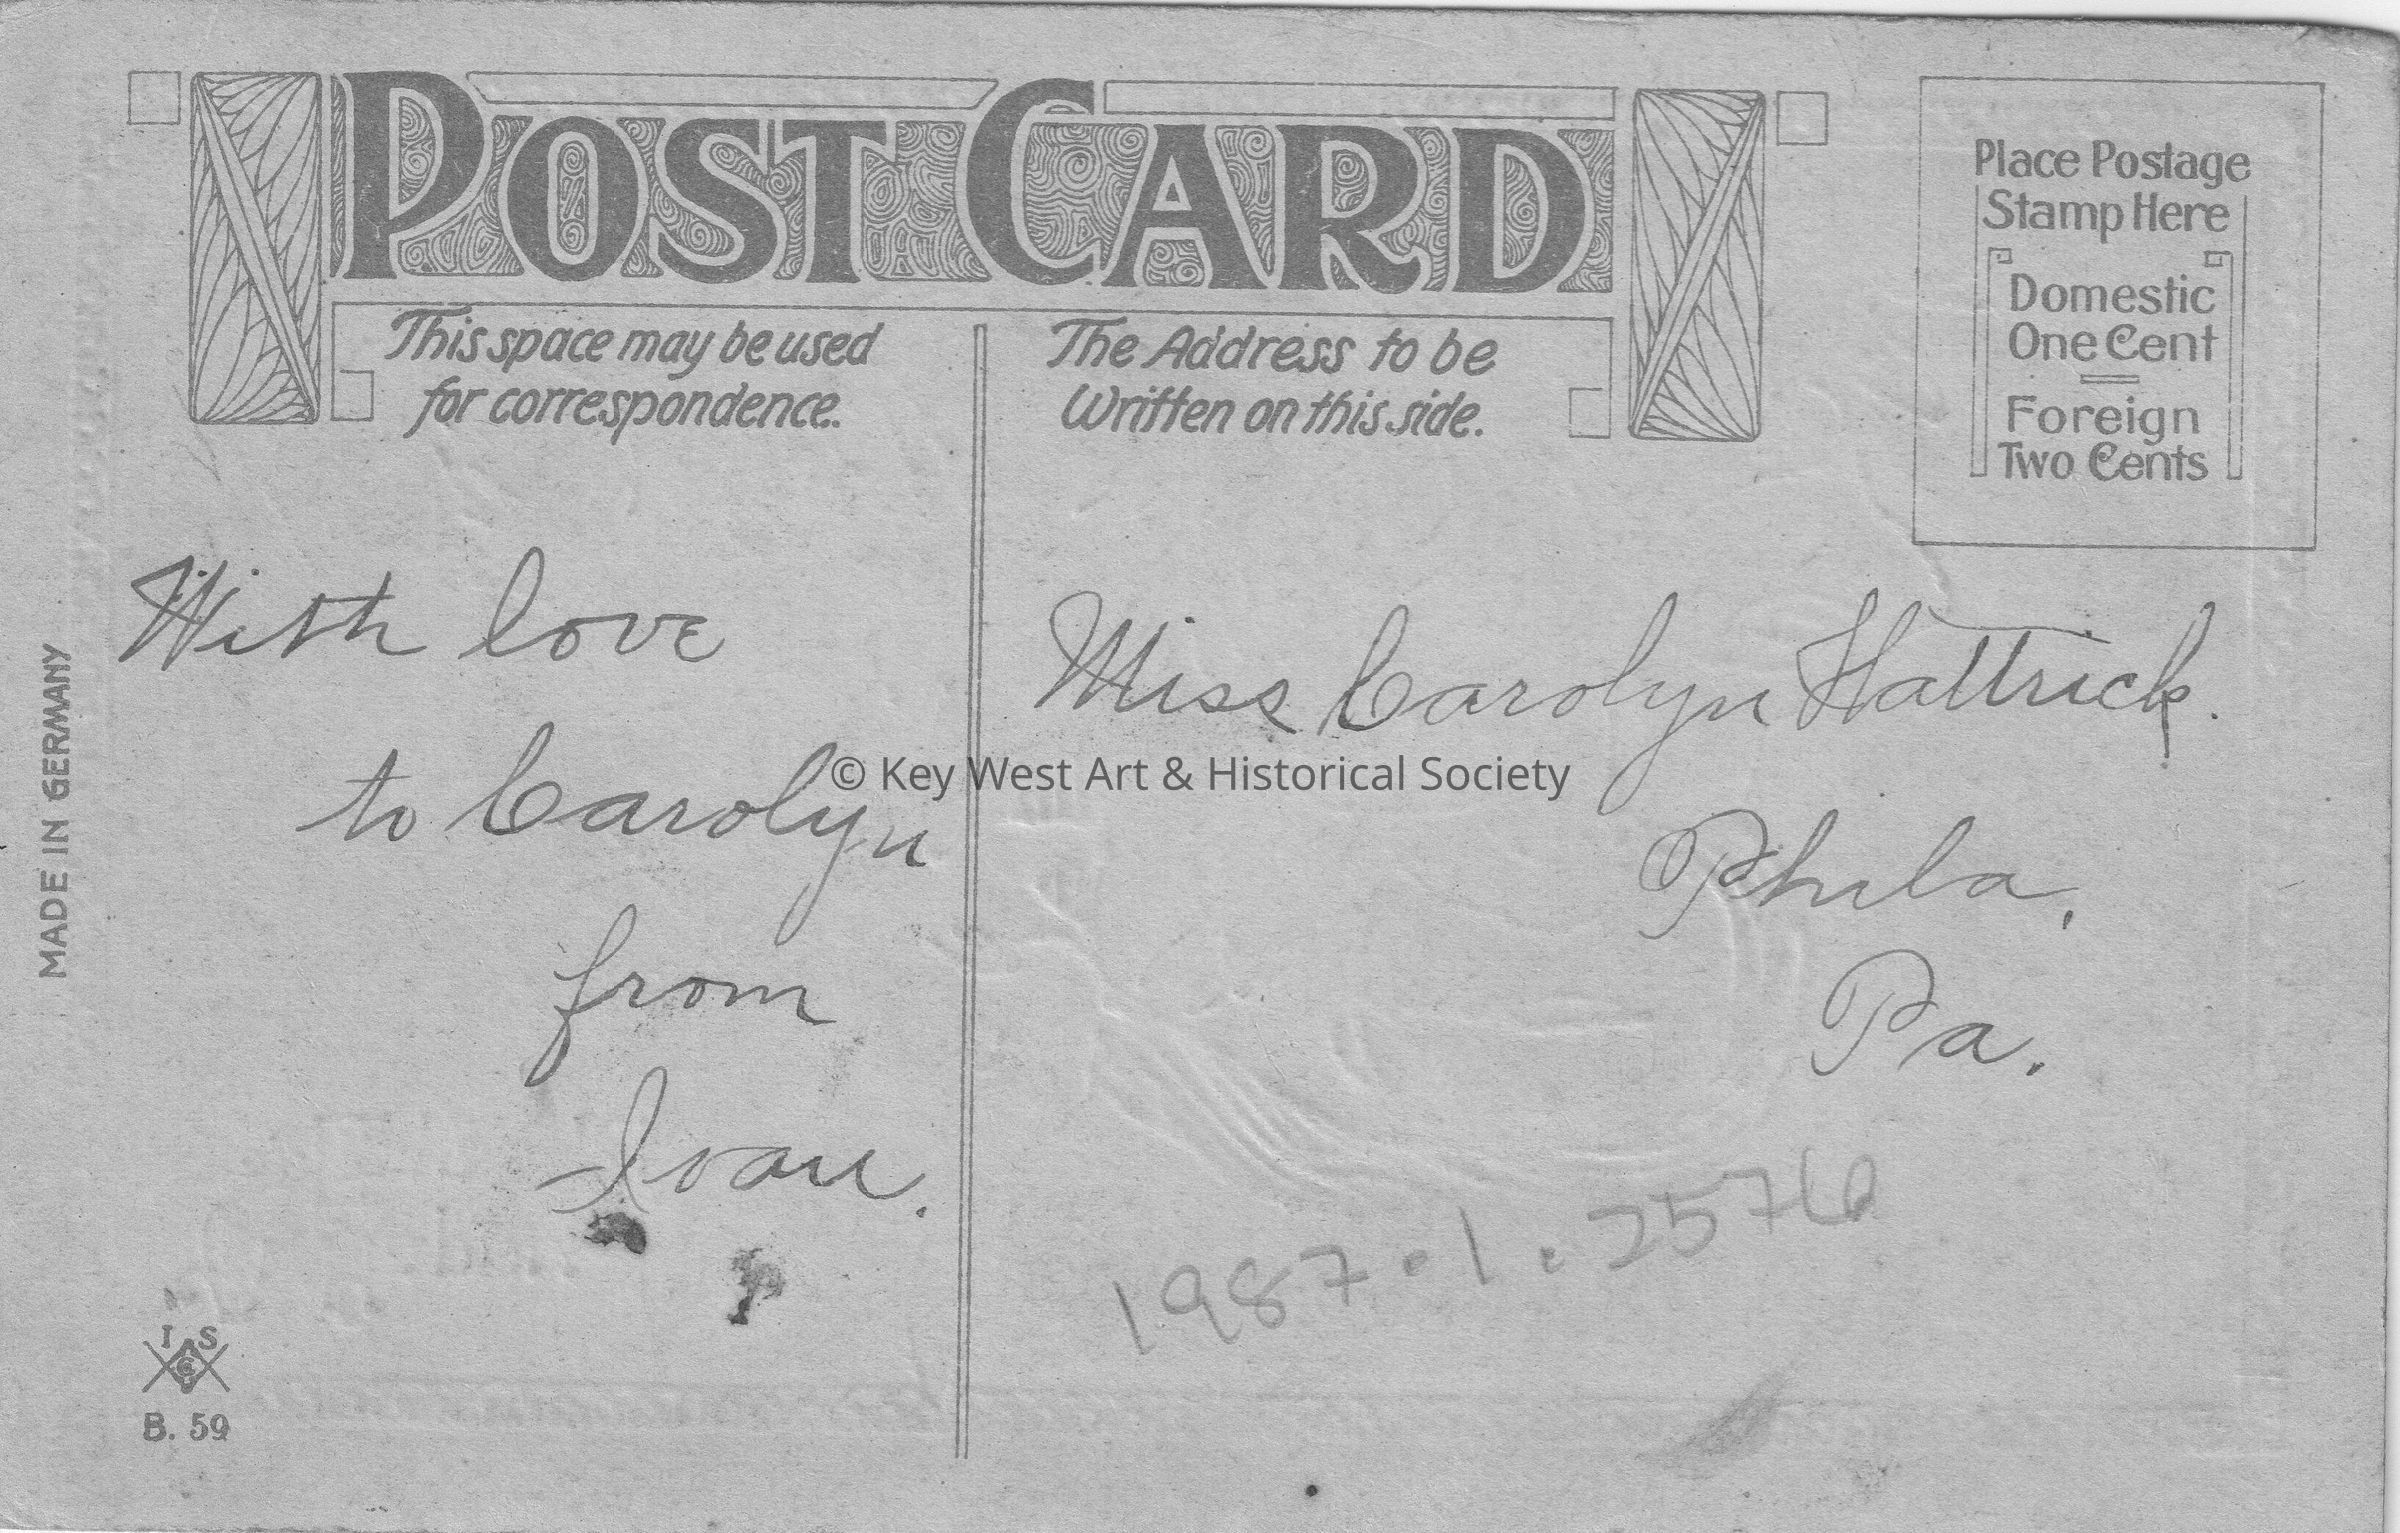 POST CARD
Place Postage
Stamp Here
Domestic
One Cent
Foreign
Two Cents
This space may be used
for correspondence.
The Address to be
Written on this side.
With love
to Carolyn
from
Miss Carolyn Hattrick.
Phila.
Pa.
© Key West Art & Historical Society
MADE IN GERMANY
1987.1.2576
I S
B. 59